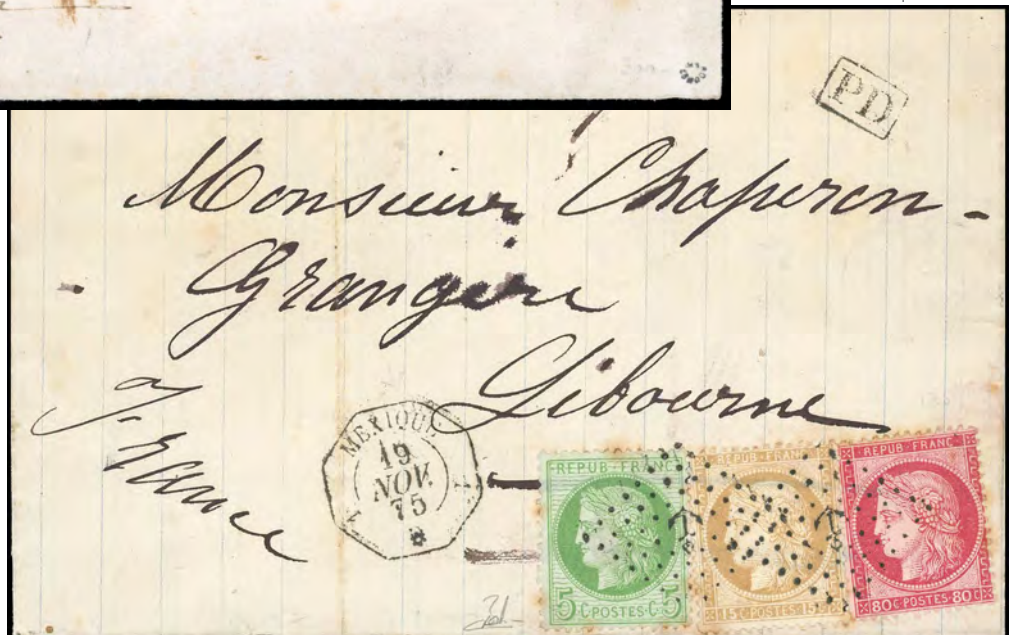 PD
Monsieur Chaperon-
Grangère
Libourne
France
MEXIQUE
19
NOV.
75
REPUB. FRANC.
5 C. POSTES. C. 5
REPUB. FRANC.
15 C. POSTES. 15 C
REPUB. FRANC.
80 C. POSTES. 80 C